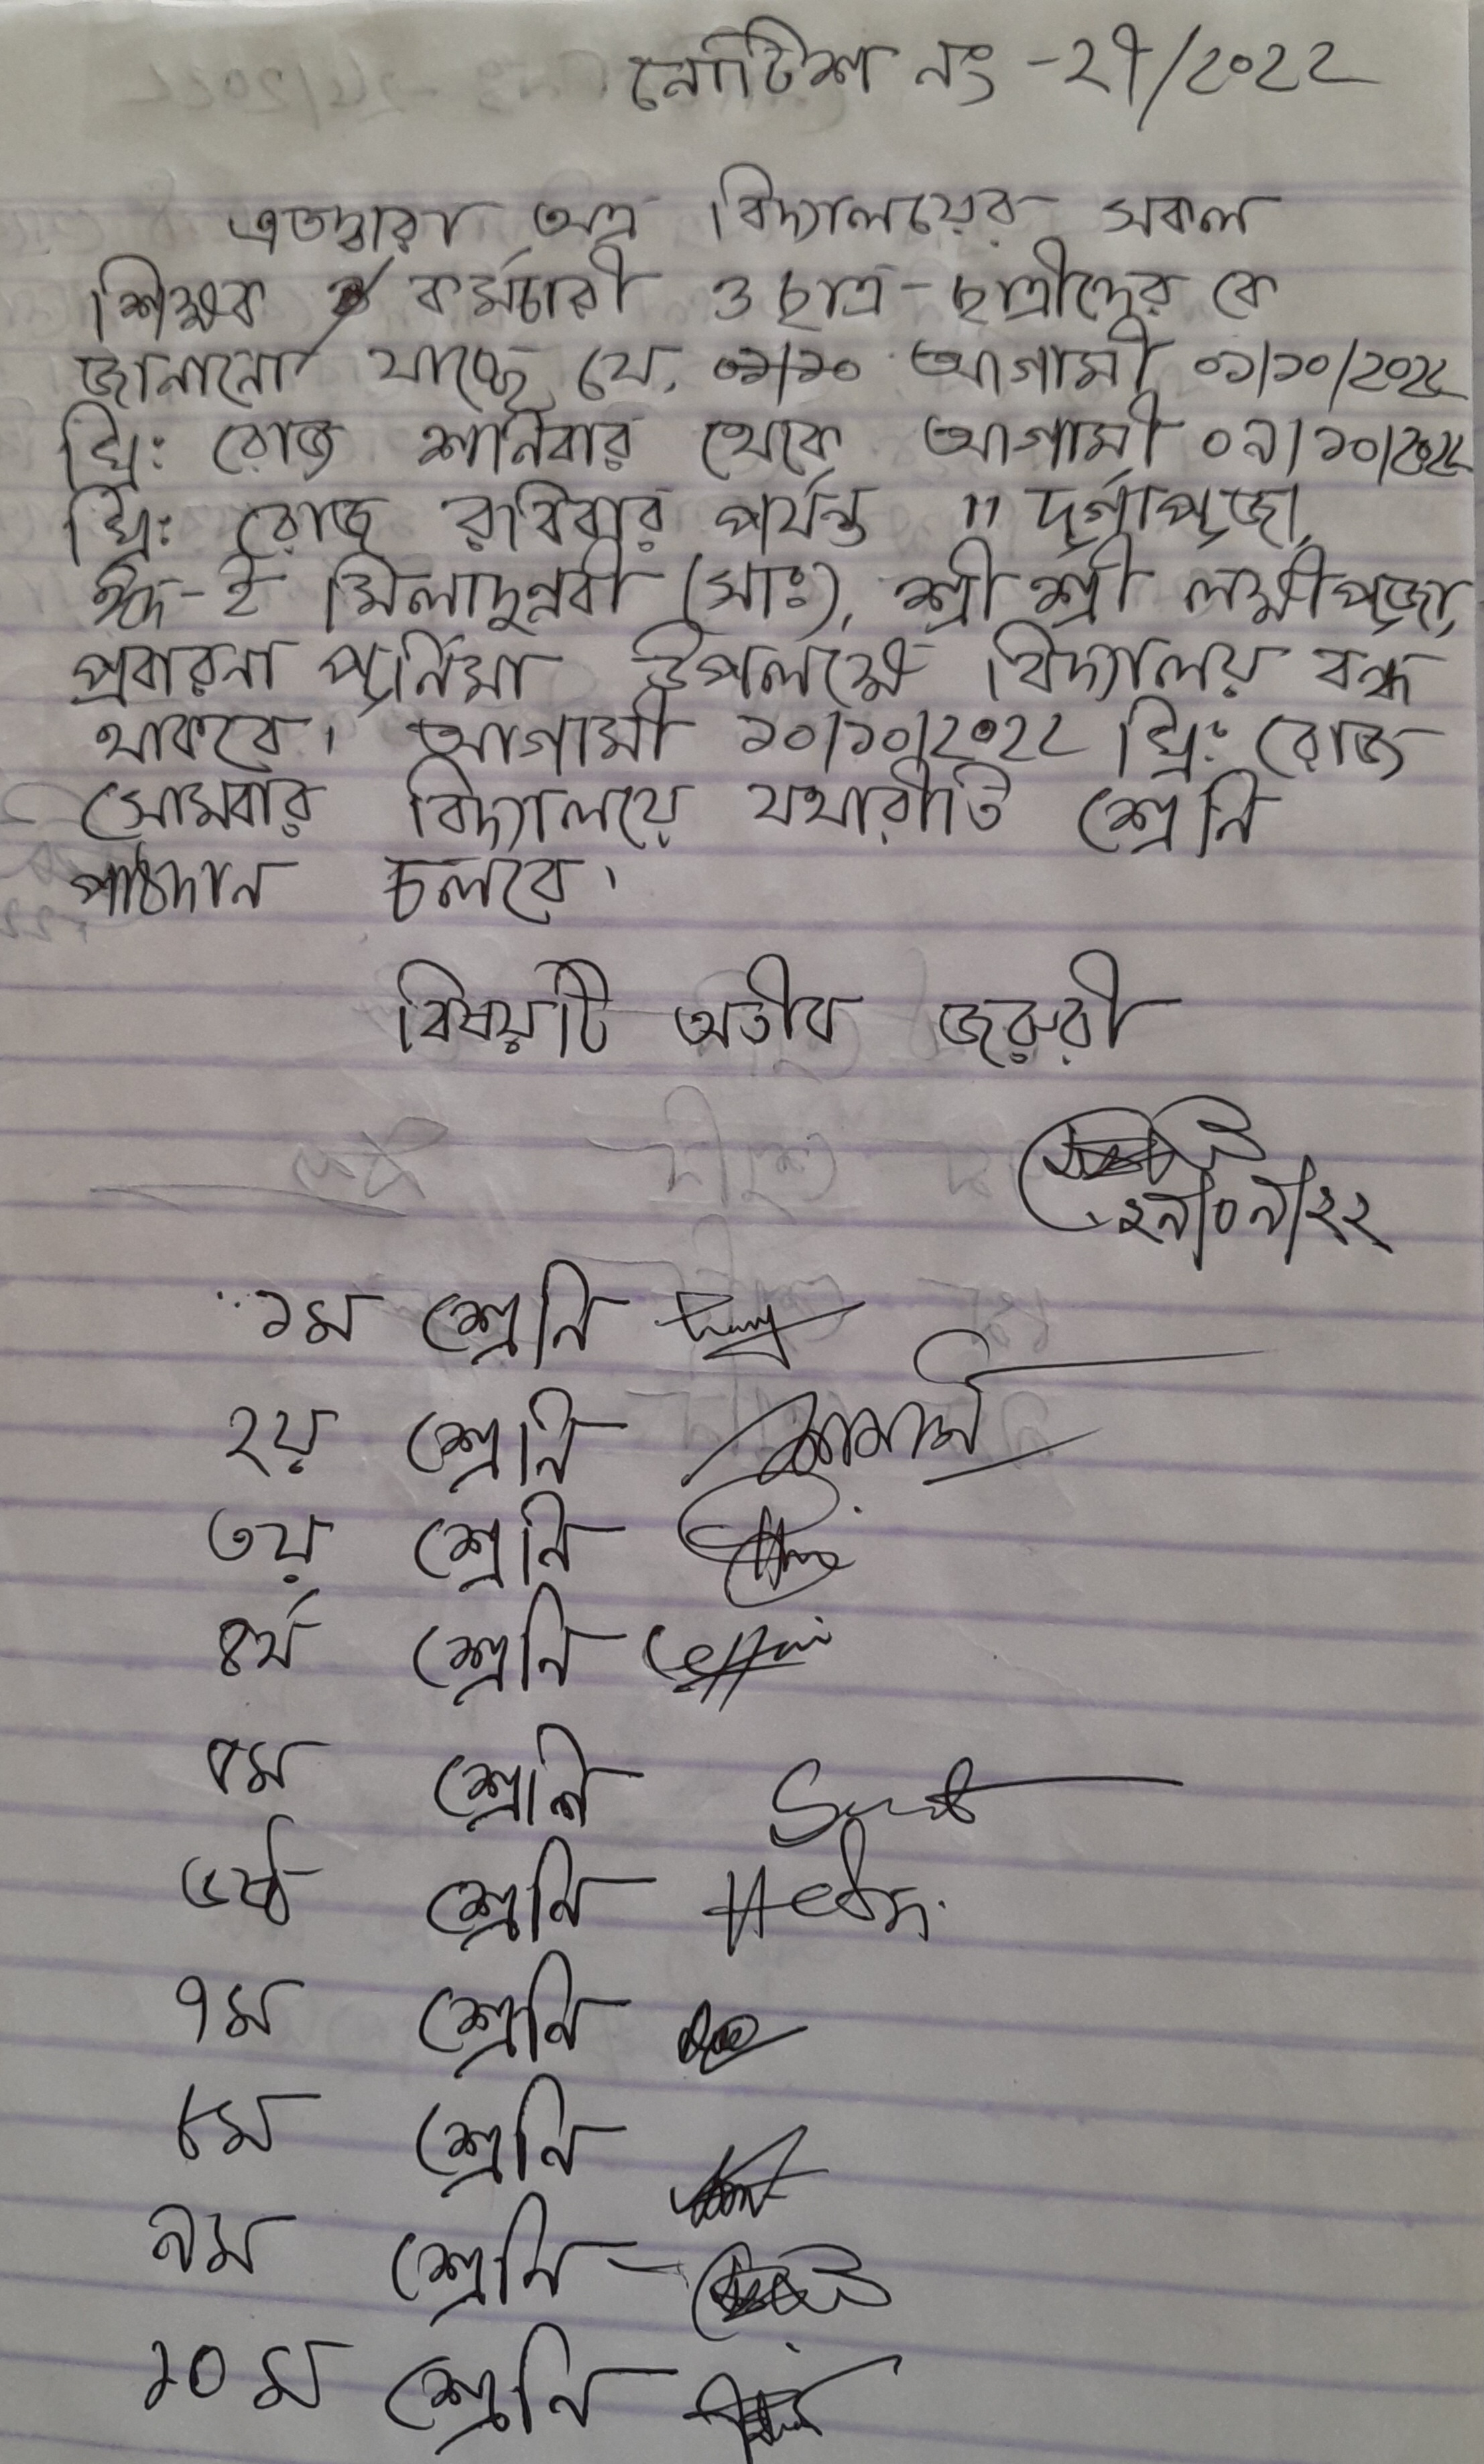 নোটিশ নং -২৭/২০২২
এতদ্বারা অত্র বিদ্যালয়ের সকল
শিক্ষক কর্মচারী ও ছাত্র-ছাত্রীদের কে
জানানো যাচ্ছে যে, ০১/১০ আগামী ০১/১০/২০২২
খ্রি: রোজ শনিবার থেকে আগামী ০৯/১০/২০২২
খ্রি: রোজ রবিবার পর্যন্ত " দূর্গাপূজা,
ঈদ-ই মিলাদুন্নবী (সাঃ), শ্রী শ্রী লক্ষীপূজা,
প্রবারনা পূর্নিমা উপলক্ষে বিদ্যালয় বন্ধ
থাকবে। আগামী ১০/১০/২০২২ খ্রি: রোজ
সোমবার বিদ্যালয়ে যথারীতি শ্রেনি
পাঠদান চলবে।
বিষয়টি অতীব জরুরী
২৯/০৯/২২
১ম শ্রেনি
২য় শ্রেনি
৩য় শ্রেনি
৪র্থ শ্রেনি
৫ম শ্রেনি
৬ষ্ঠ শ্রেনি
৭ম শ্রেনি
৮ম শ্রেনি
৯ম শ্রেনি -
১০ ম শ্রেনি